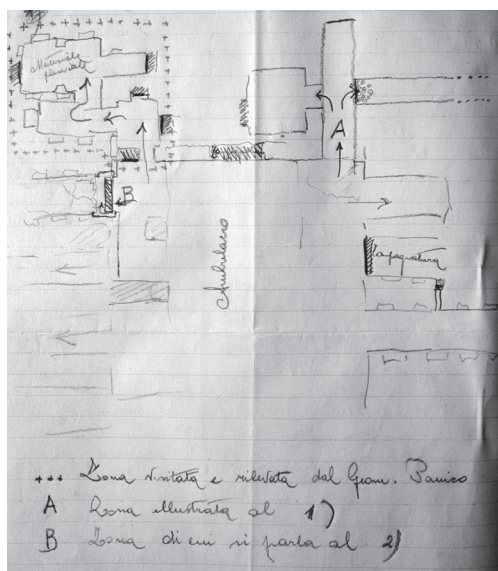 Materiale
A
B
Ambulacro
+++ Zona visitata e rilevata dal Geom. Panico
A Zona illustrata al 1)
B Zona di cui si parla al 2)